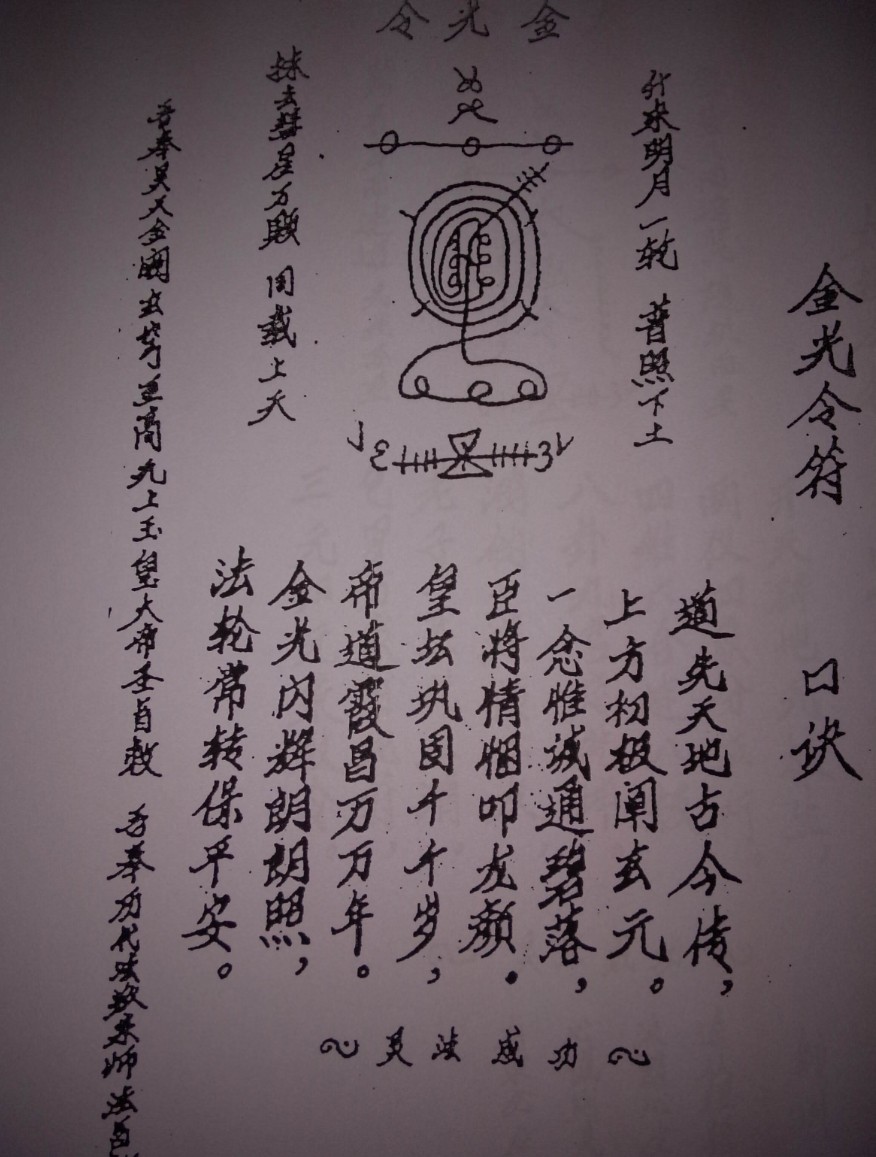 金光令
金光令符 口诀
行来明月一轮 普照下土
抹去彗星万颗 同载上天
道先天地古今传，
上方初极阐玄元。
一念惟诚通碧落，
臣将情悃叩龙颜。
皇坛巩固千千岁，
帝道霞昌万万年。
金光闪辉朗朗照，
法轮常转保平安。
灵法成功
吾奉昊天金阙玄穹至高无上玉皇大帝圣旨敕 吾奉历代法教宗师法旨